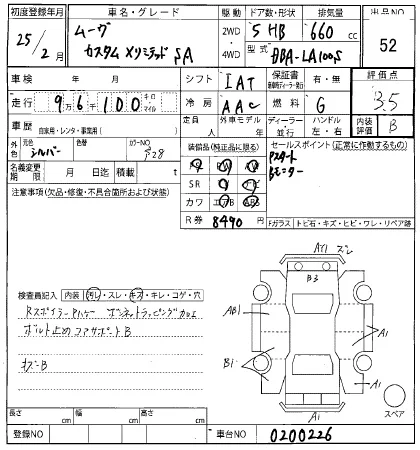 初度登録年月 車名・グレード 駆動 ドア数・形状 排気量 出品NO
25/2月 ムーヴ カスタム Xリミテッド SA 2WD 4WD 5 HB 660 cc 52
型式 DBA-LA100S
車検 年 月 シフト IAT 保証書 有・無 評価点
走行 9万6千100 キロ マイル 冷房 AAC 燃料 G 3.5
車歴 自家用・レンタ・事業用( ) 定員 人 外車モデル 年 ディーラー 並行 ハンドル 左・右 内装評価 B
外色 元色 シルバー 色替 カラーNO 装備品(純正品に限る) セールスポイント(正常に作動するもの)
名義変更期限 月 日迄 積載 t PS PW Pスタート
注意事項(欠品・修復・不具合箇所および状態) SR AW ナビ Bモニター
カワ エアB ABS
R券 8490 円 Fガラス トビ石・キズ・ヒビ・ワレ・リペア跡
A1
B3
検査員記入 内装 汚レ・スレ・キズ・キレ・コゲ・穴
AB1 A1
ボルト止め コアサポートB
B1 A1
キズ-B
A1 スペア
長さ cm 幅 cm 高さ cm
登録NO 車台NO 0200226